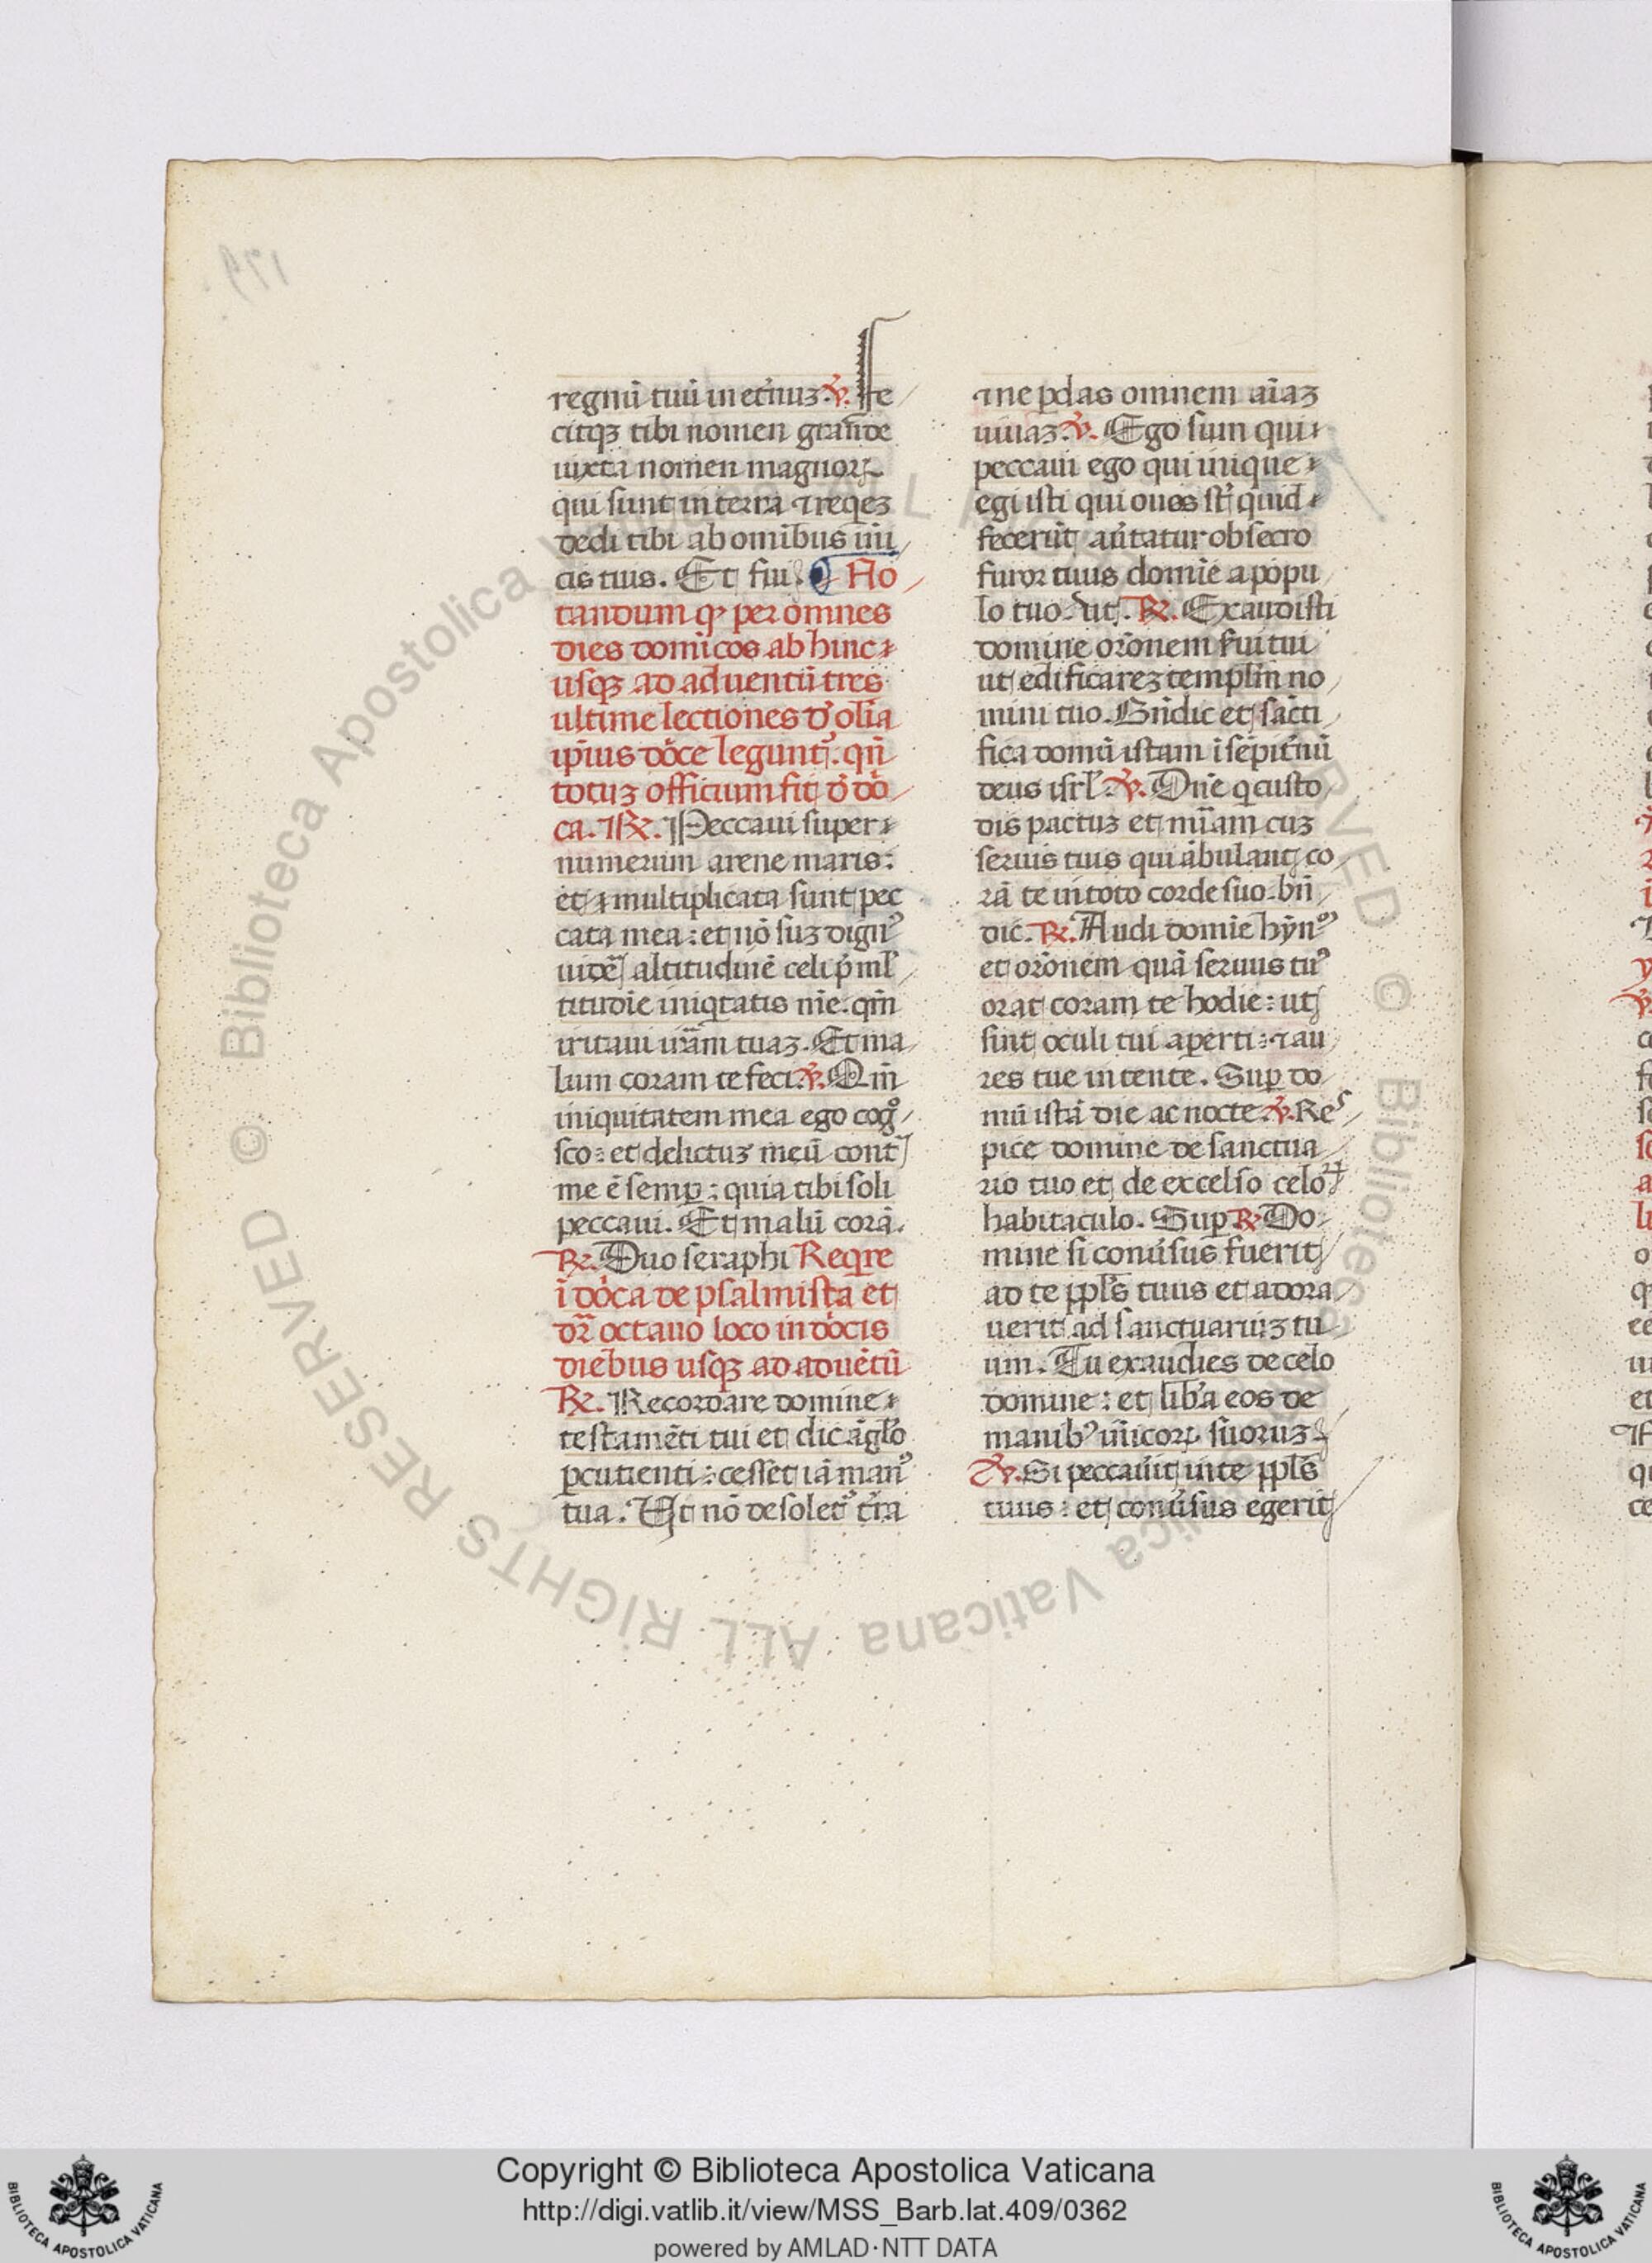 regnū tuū in etͥnuꝫ. ℣. Fe
citqꝫ tibi nomen grande
iuxta nomen magnoꝝ
qui sunt in terra ⁊ reqeꝫ
dedi tibi ab omībus inī
cis tuis. Et fui. No
tandum ꝙ per omnes
dies domīcos ab hinc
usqꝫ ad aduentū tres
ultime lectiones d' olīa
ip̄ius dōce leguntʳ. qn̄
totuꝫ officium fit d' dō
ca. ℟. Peccaui super
numerum arene maris:
et multiplicata sunt pec
cata mea: et nō suꝫ dignꝰ
uidē altitudinē celi p̄ ml'
titudīe iniqtatis m̄e. qm̄
irritaui irā̄m tuaꝫ. Et ma
lum coram te feci. ℣. Qm̄
iniquitatem mea ego cog̊
sco: et delictuꝫ meū cont̄
me ē semꝑ: quia tibi soli
peccaui. Et malū corā.
℟. Duo seraphi Reqre
ī dōca de psalmista et
dr̄ octauo loco in dōcis
diebus usqꝫ ad aduētū
℟. Recordare domine
testamēti tui et dic āglo
ꝑcutienti: cesset iā manꝰ
tua. Ut nō desoletʳ tr̄a
⁊ ne ꝑdas omnem aīaꝫ
uiuaꝫ. ℣. Ego sum qui
peccaui ego qui inique
egi isti qui oues st̄ quid
fecerūt auͥtatur obsecro
furor tuus domīe a popu
lo tuo. ut. ℟. Exaudisti
domine orōnem s̄ui tui
ut edificareꝫ templm̄ no
mini tuo. Bn̄dic et sācti
fica domū istam ī sēpitͥnū
deus isrl'. ℣. Dn̄e q custo
dis pactuꝫ et mīam cuꝫ
seruis tuis qui ābulant co
rā te in toto corde suo. bn̄
dic. ℟. Audi domīe hȳnꝰ
et orōnem quā seruus tuꝰ
orat coram te hodie: ut
sint oculi tui aperti: ⁊ au
res tue intente. Suꝑ do
mū istā die ac nocte. ℣. Res
pice domine de sanctua
rio tuo et de excelso celoꝝ
habitaculo. Suꝑ ℟ Do
mine si conuͥsus fuerit
ad te ppl's tuus et adora
uerit ad sanctuariuꝫ tu
um. Tu exaudies de celo
domine: et lib'a eos de
manibꝰ inīcoꝝ suoruꝫ
℣. Si peccauͥit in te ppl's
tuus: et conuͥsus egerit
179
Copyright © Biblioteca Apostolica Vaticana
http://digi.vatlib.it/view/MSS_Barb.lat.409/0362
powered by AMLAD·NTT DATA
© Biblioteca Apostolica Vaticana ALL RIGHTS RESERVED
© Biblioteca Apostolica Vaticana ALL RIGHTS RESERVED
BIBLIOTECA APOSTOLICA VATICANA
BIBLIOTECA APOSTOLICA VATICANA